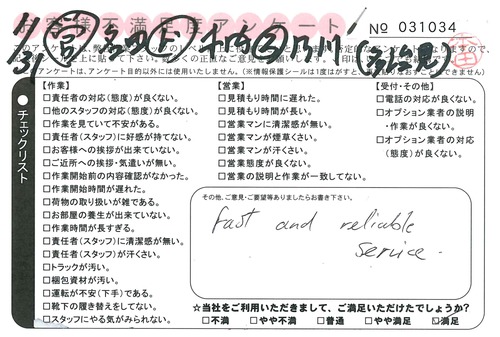 お客様不満足度アンケート
No 031034
チェックリスト
【作業】
□責任者の対応(態度)が良くない。
□他のスタッフの対応(態度)が良くない。
□作業を見ていて不安がある。
□責任者(スタッフ)に好感が持てない。
□お客様への挨拶が出来ていない。
□ご近所への挨拶・気遣いが無い。
□作業開始前の内容確認がなかった。
□作業開始時間が遅れた。
□荷物の取り扱いが雑である。
□お部屋の養生が出来ていない。
□作業時間が長すぎる。
□責任者(スタッフ)に清潔感が無い。
□責任者(スタッフ)が汗くさい。
□トラックが汚い。
□梱包資材が汚い。
□運転が不安(下手)である。
□靴下の履き替えをしてない。
□スタッフにやる気がみられない。
【営業】
□見積もり時間に遅れた。
□見積もり時間が長い。
□営業マンに清潔感が無い。
□営業マンが煙草くさい。
□営業マンが汗くさい。
□営業態度が良くない。
□営業の説明と作業が一致してない。
【受付・その他】
□電話の対応が良くない。
□オプション業者の説明
・作業が良くない。
□オプション業者の対応
(態度)が良くない。
その他、ご意見・ご要望等ありましたらお書き下さい。
fast and reliable
service.
☆当社をご利用いただきまして、ご満足いただけたでしょうか?
□不満 □やや不満 □普通 □やや満足 ☑満足